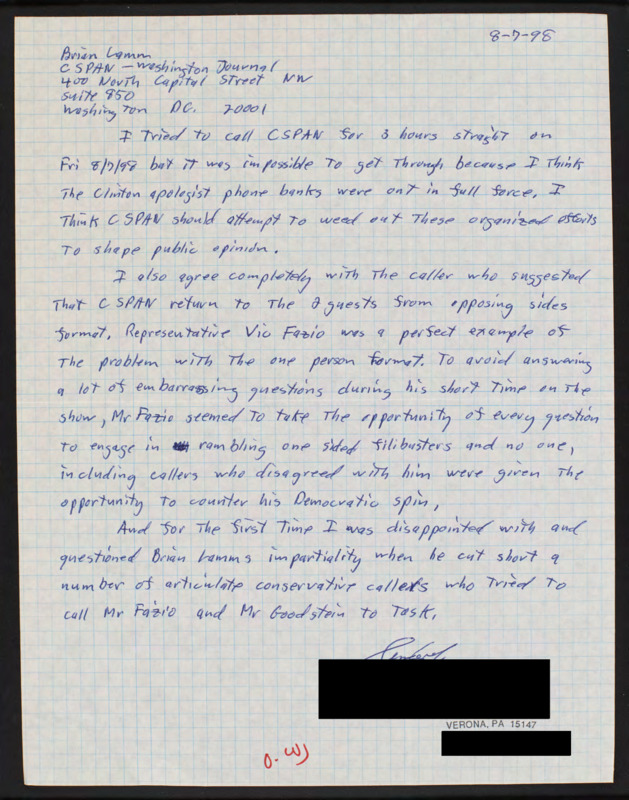 8-7-98
Brian Lamm
CSPAN - Washington Journal
400 North Capital Street NW
Suite 850
Washington DC. 20001
I Tried to call CSPAN for 3 hours straght on
Fri 8/7/98 but it was impossible to get Through because I Think
The Clinton apologist phone banks were out in full force. I
Think CSPAN should attempt to weed out These organized efforts
To shape public opinion.
I also agree completely with The caller who suggested
That CSPAN return to The 2 guests from opposing sides
format. Representative Vic Fazio was a perfect example of
The problem with The one person format. To avoid answering
a lot of embarrassing questions during his short Time on The
show, Mr Fazio seemed To take The opportunity of every question
to engage in rambling one sided filibusters and no one,
including callers who disagreed with him were given The
opportunity To counter his Democratic spin.
And for The first Time I was disappointed with and
questioned Brian Lamms impartiality when he cut short a
number of articulate conservative callers who Tried To
call Mr Fazio and Mr Goodstein to Task.
VERONA, PA 15147